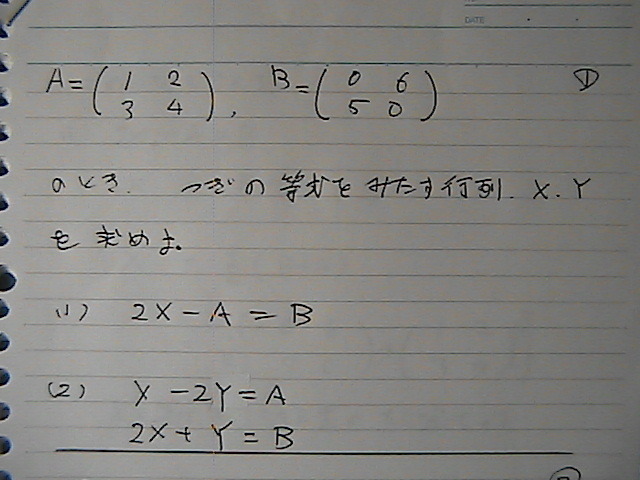 DATE
A=(1 2 3 4), B=(0 6 5 0) ①
のとき. つぎの等式をみたす行列. X. Y
を求めよ。
(1) 2X-A=B
(2) X-2Y=A
2X+Y=B